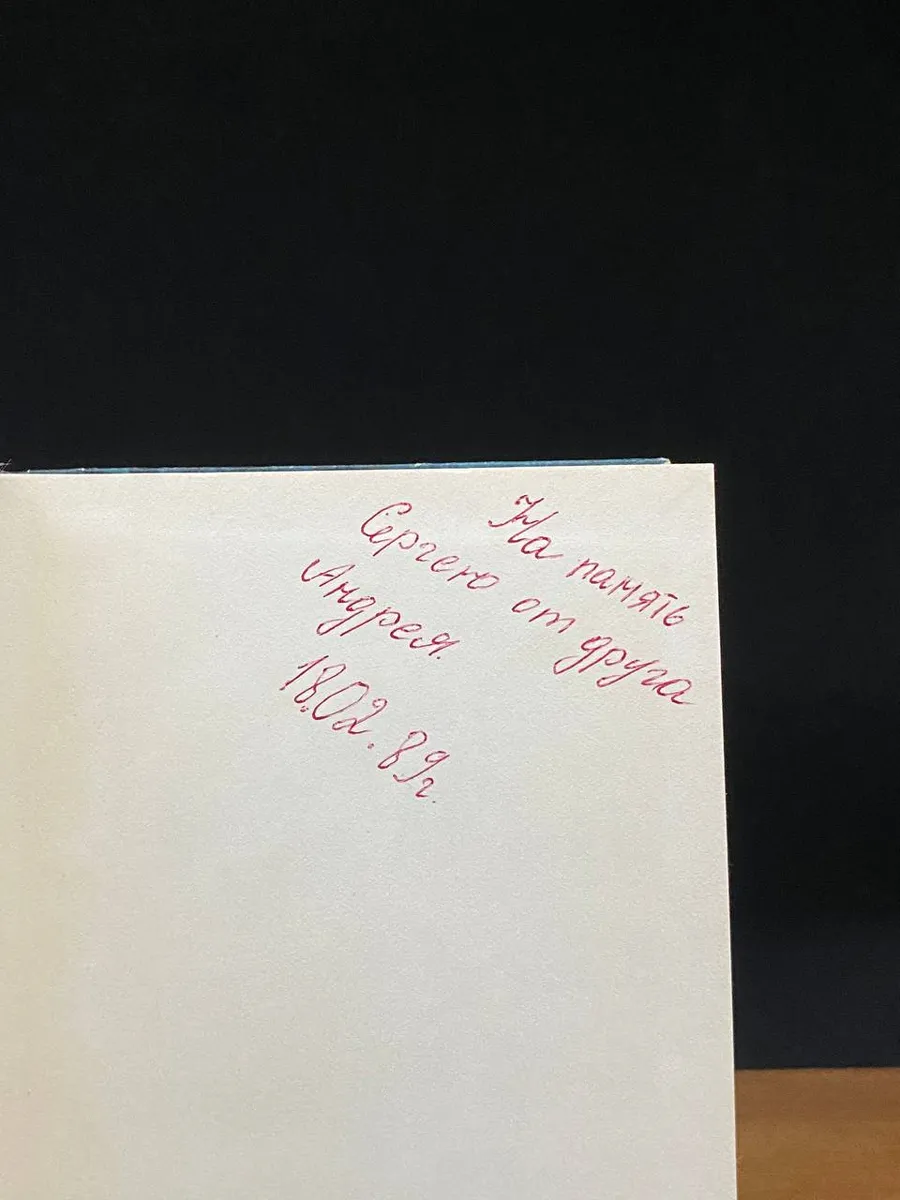 На память
Сергею от друга
Андрея.
18.02.89г.